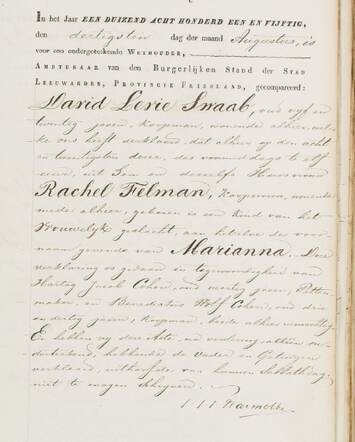 In het Jaar EEN DUIZEND ACHT HONDERD EEN EN VIJFTIG,
den dertigsten dag der maand Augustus, is
voor ons ondergeteekende WETHOUDER,
AMBTENAAR van den Burgerlijken Stand der STAD
LEEUWARDEN, PROVINCIE FRIESLAND, gecompareerd:
David Levie Smaab, oud vijf en
twintig jaren, Koopman, wonende alhier, welke
ons heeft verklaard, dat alhier op den acht
en twintigsten dezer, des voormiddags te elf
ure, uit hem en deszelfs Huisvrouw
Rachel Felman, Koopvrouw, wonende
mede alhier, geboren is een kind van het
Vrouwelijk geslacht, aan hetwelk de voor-
naam gegeven van Marianna. Deze
verklaring is gedaan in tegenwoordigheid van
Hartog Jacob Cohen, oud veertig jaren,
maker, en Benedictus Wolf Cohen, oud drie
en dertig jaren, Koopman, beide alhier woonachtig.
En hebben wij deze Akte, na voorlezing, alleen on-
derteekend, hebbende de Vader en Getuigen
verklaard, uithoofde van hunnen Sabbathdag
niet te mogen schrijven.